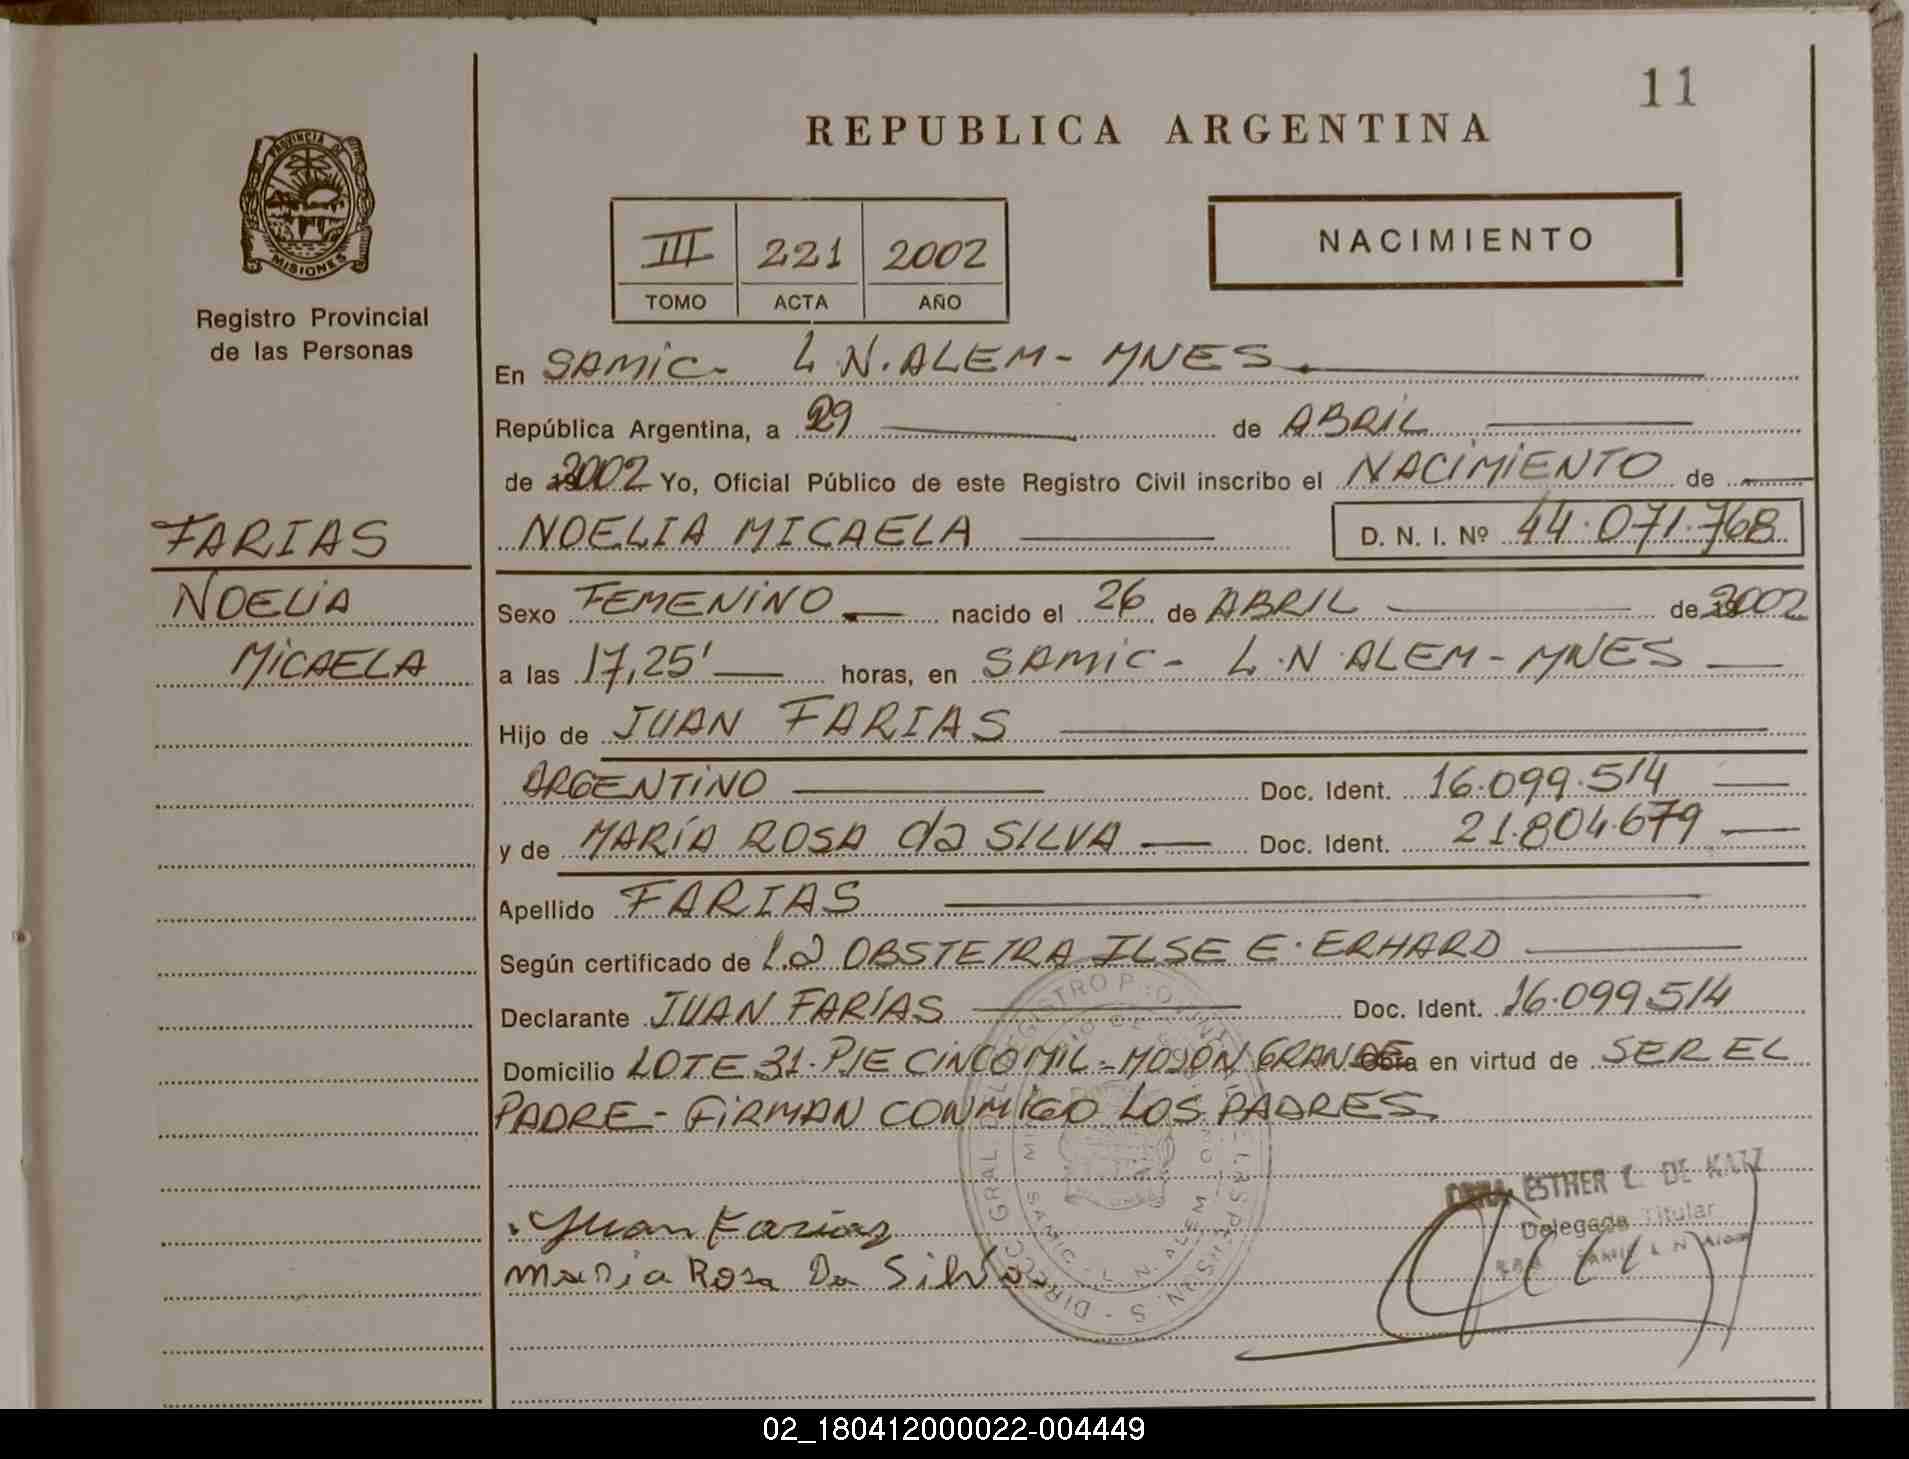 11
REPUBLICA ARGENTINA
PROVINCIA DE
MISIONES
Registro Provincial
de las Personas
III 221 2002
TOMO ACTA AÑO
NACIMIENTO
En SAMIC- L.N.ALEM- MNES.
República Argentina, a 29 de ABRIL
de 2002 Yo, Oficial Público de este Registro Civil inscribo el NACIMIENTO de
FARIAS
NOELIA MICAELA
D. N. I. Nº 44.071.768
NOELIA
MICAELA
Sexo FEMENINO nacido el 26 de ABRIL de 2002
a las 17,25' horas, en SAMIC- L.N.ALEM- MNES
Hijo de JUAN FARIAS
ARGENTINO Doc. Ident. 16.099.514
y de MARÍA ROSA da SILVA Doc. Ident. 21.804.679
Apellido FARIAS
Según certificado de La OBSTETRA ILSE E. ERHARD
Declarante JUAN FARÍAS Doc. Ident. 16.099.514
Domicilio LOTE 31. PJE CINCO MIL - MOJON GRANDE Obra en virtud de SER EL
PADRE - FIRMAN CONMIGO LOS PADRES.
ESTHER L. DE KATZ
Delegada Titular
SAMIC L N Alem
Juan Farias
Maria Rosa Da Silva
02_180412000022-004449